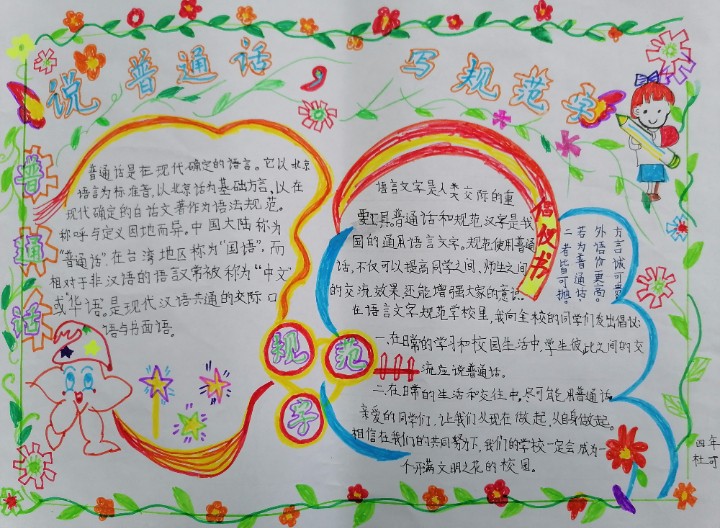 说普通话，写规范字
普通话
普通话是在现代确定的语言。它以北京
语言为标准音，以北京话为基础方言，以在
现代确定的白话文著作为语法规范。
称呼与定义因地而异。中国大陆称为
“普通话”.在台湾地区称为“国语”.而
相对于非汉语的语言常被称为“中文”
或“华语”。是现代汉语共通的交际口
语与书面语。
规范字
倡仪书
语言文字是人类交际的重
要工具。普通话和规范汉字是我
国的通用语言文字。规范使用普通
话，不仅可以提高同学之间，师生之间
的交流效果，还能增强大家的意识。
在语言文字规范学校里，我向全校的同学们发出倡议：
一.在日常的学习和校园生活中，学生彼此之间的交
流应说普通话。
二.在日常的生活和交往中，尽可能使用普通话
亲爱的同学们，让我们从现在做起，从自身做起。
相信在我们的共同努力下，我们的学校一定会成为一
个开满文明之花的校园。
方言诚可贵
外语价更高。
若为普通话
二者皆可抛。
四年
杜可